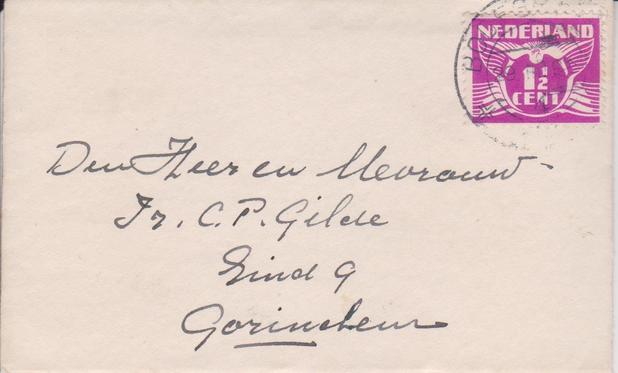 NEDERLAND
1 1/2
CENT
Den Heer en Mevrouw-
Ir. C. P. Gilde
Eind 9
Gorinchem